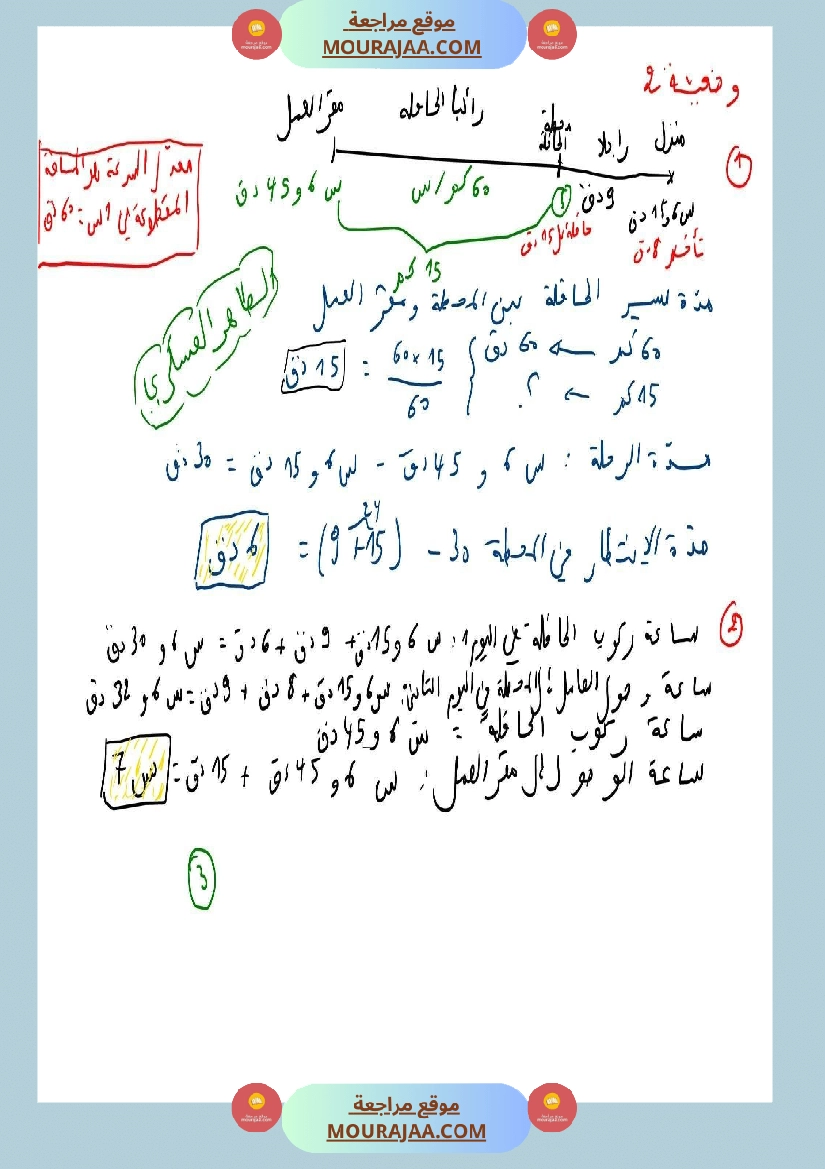 موقع مراجعة
MOURAJAA.COM
وضعية 2
1
منزل راجلا محطة الحافلة راكبا الحافلة مقر العمل
س 6 و 15 دق 9 دق ؟ 60 كم/س س 6 و 45 دق
تأخر 8 دق حافلة كل 15 دق
15 كم
معدل السرعة هو المسافة
المقطوعة في 1س = 60 دق
الطاهر العسكري
مدة سير الحافلة بين المحطة ومقر العمل
60 كم ← 60 دق
15 كم ← ؟
60 × 15 / 60 = 15 دق
مدة الرحلة : س 6 و 45 دق - س 6 و 15 دق = 30 دق
24
مدة الانتظار في المحطة 30 - (15 + 9) = 6 دق
2
ساعة ركوب الحافلة في اليوم 1 : س 6 و 15 دق + 9 دق + 6 دق = س 6 و 30 دق
ساعة وصول العامل إلى المحطة في اليوم الثاني: س 6 و 15 دق + 8 دق + 9 دق = س 6 و 32 دق
ساعة ركوب الحافلة = س 6 و 45 دق
ساعة الوصول إلى مقر العمل : س 6 و 45 دق + 15 دق = س 7
3
موقع مراجعة
MOURAJAA.COM